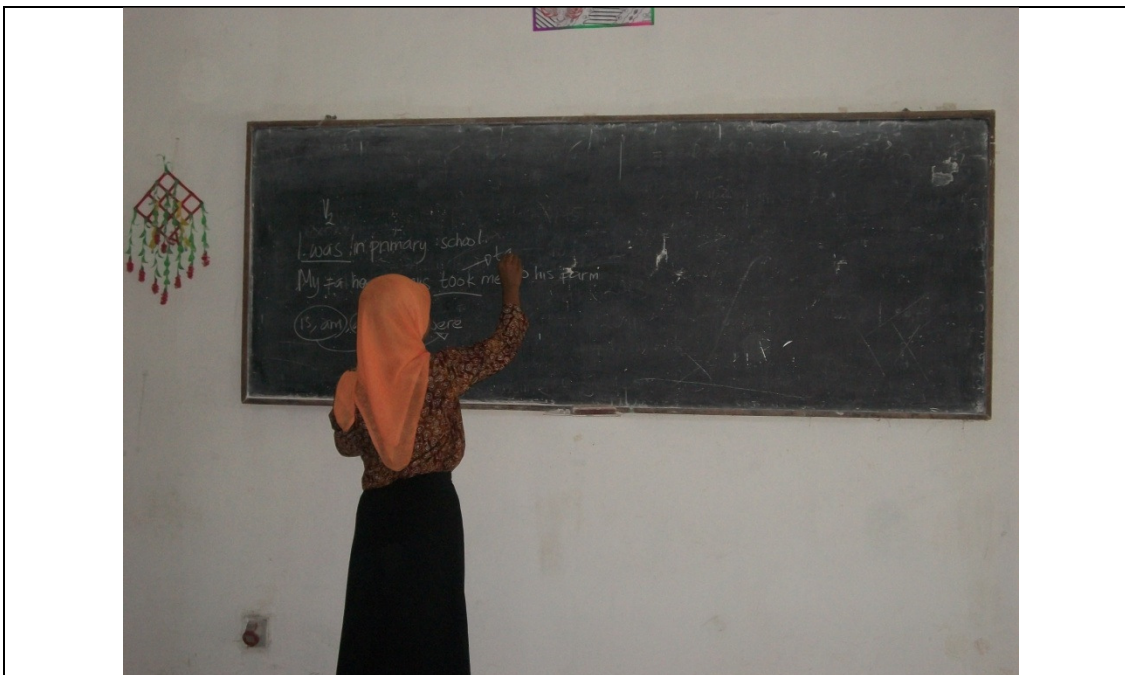 V2
I was in primary school.
My took me to his farm
is, am were